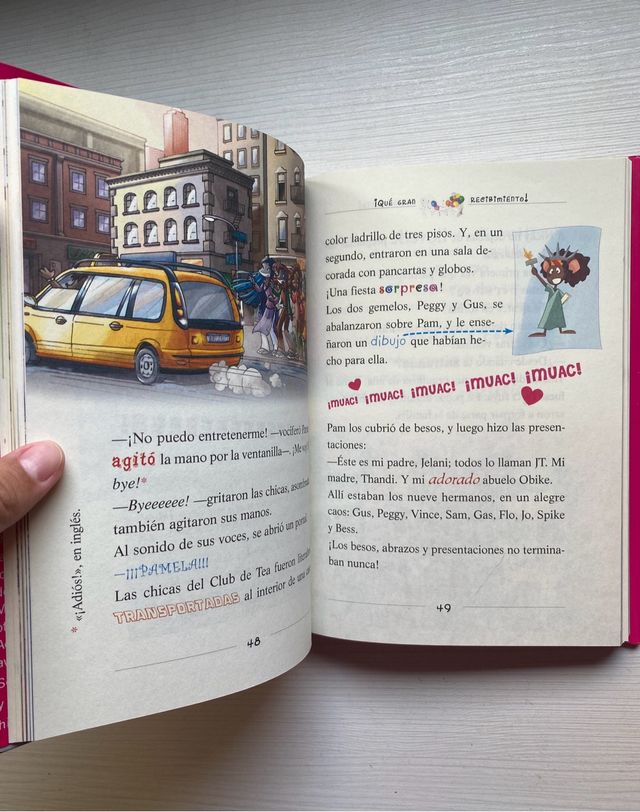 —¡No puedo entretenerme! —vociferó
agitó la mano por la ventanilla—. ¡Me
bye!*
—Byeeeeee! —gritaron las chicas,
también agitaron sus manos.
Al sonido de sus voces, se abrió un
—¡¡¡PAMELA!!!
Las chicas del Club de Tea fueron
TRANSPORTADAS al interior de una
* «¡Adiós!», en inglés.
48
¡QUÉ GRAN RECIBIMIENTO!
color ladrillo de tres pisos. Y, en un
segundo, entraron en una sala de-
corada con pancartas y globos.
¡Una fiesta sorpresa!
Los dos gemelos, Peggy y Gus, se
abalanzaron sobre Pam, y le ense-
ñaron un dibujo que habían he-
cho para ella.
¡MUAC! ¡MUAC! ¡MUAC! ¡MUAC! ¡MUAC!
Pam los cubrió de besos, y luego hizo las presen-
taciones:
—Éste es mi padre, Jelani; todos lo llaman JT. Mi
madre, Thandi. Y mi adorado abuelo Obike.
Allí estaban los nueve hermanos, en un alegre
caos: Gus, Peggy, Vince, Sam, Gas, Flo, Jo, Spike
y Bess.
¡Los besos, abrazos y presentaciones no termina-
ban nunca!
49